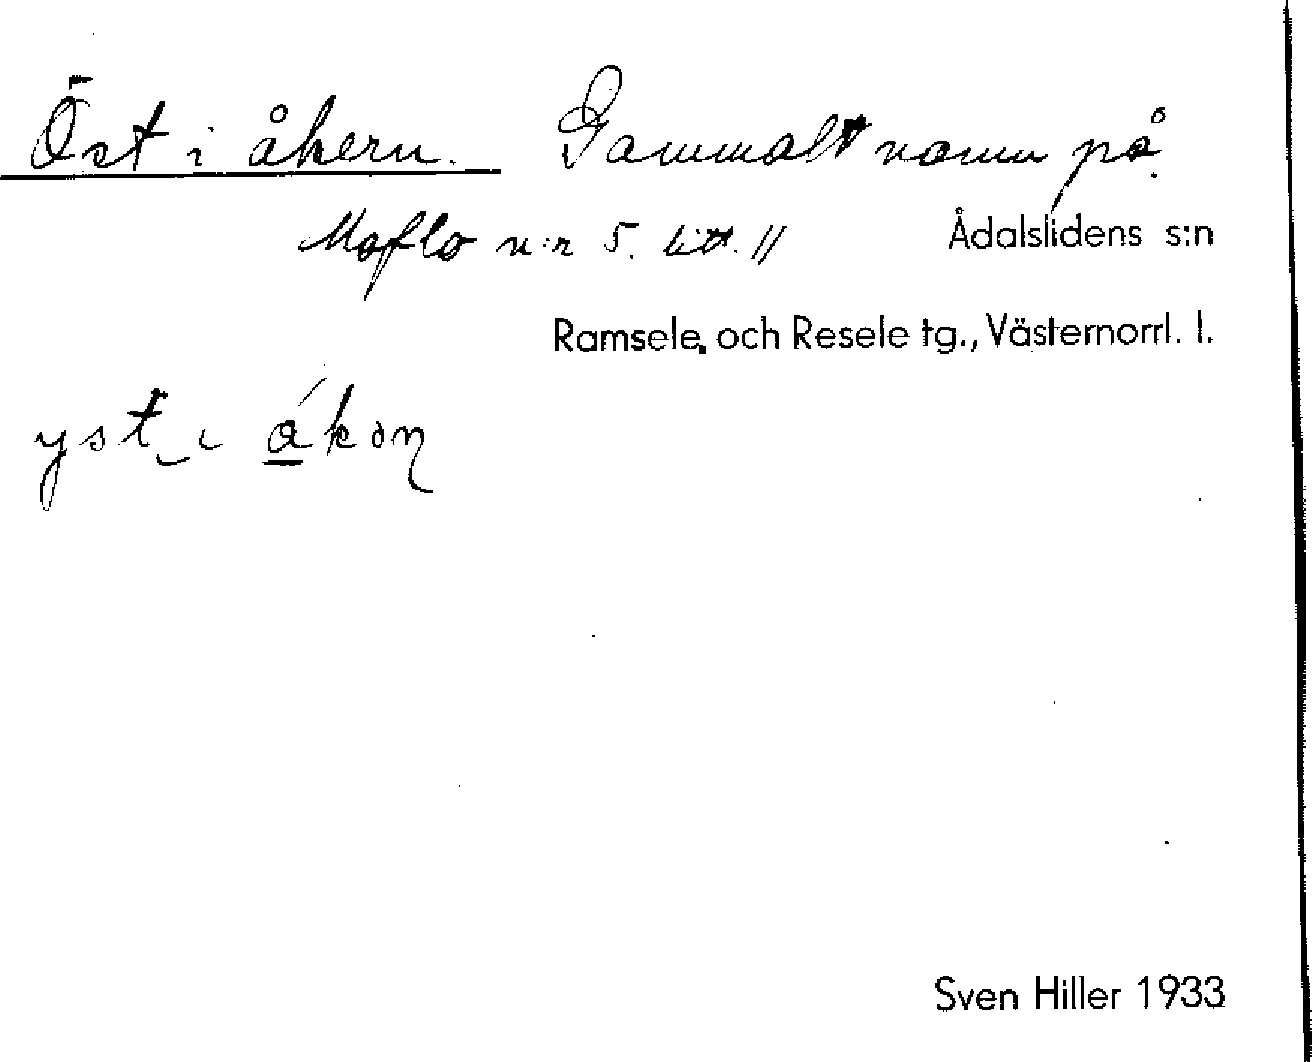 Öst i åkern. Gammalt namn på
Moflo n:r 5. litt. 11
Ådalslidens s:n
Ramsele, och Resele tg., Västernorrl. l.
yst‿i ákəŋ
Sven Hiller 1933